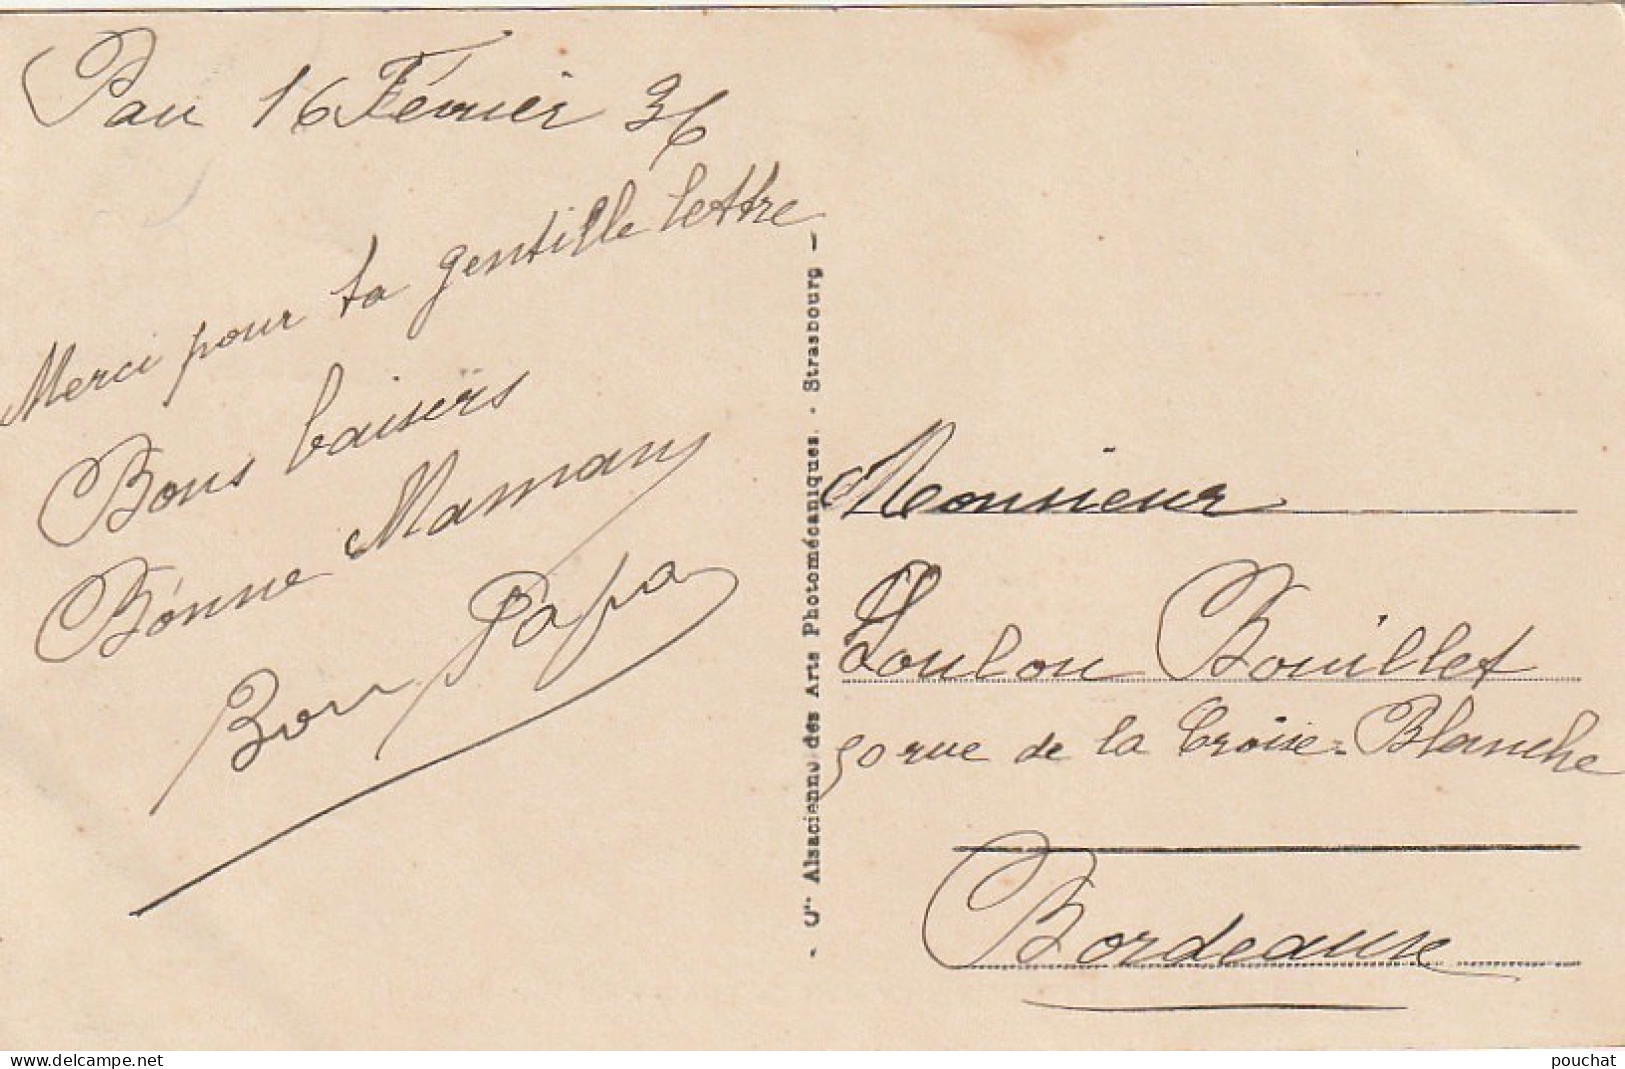 Pau 16 Février 36
Merci pour ta gentille lettre
Bons baisers
Bonne Maman
Bon Papa
- Cie Alsacienne des Arts Photomécaniques. - Strasbourg -
Monsieur
Loulou Bouillet
90 rue de la Croix-Blanche
Bordeaux
www.delcampe.net
pouchat